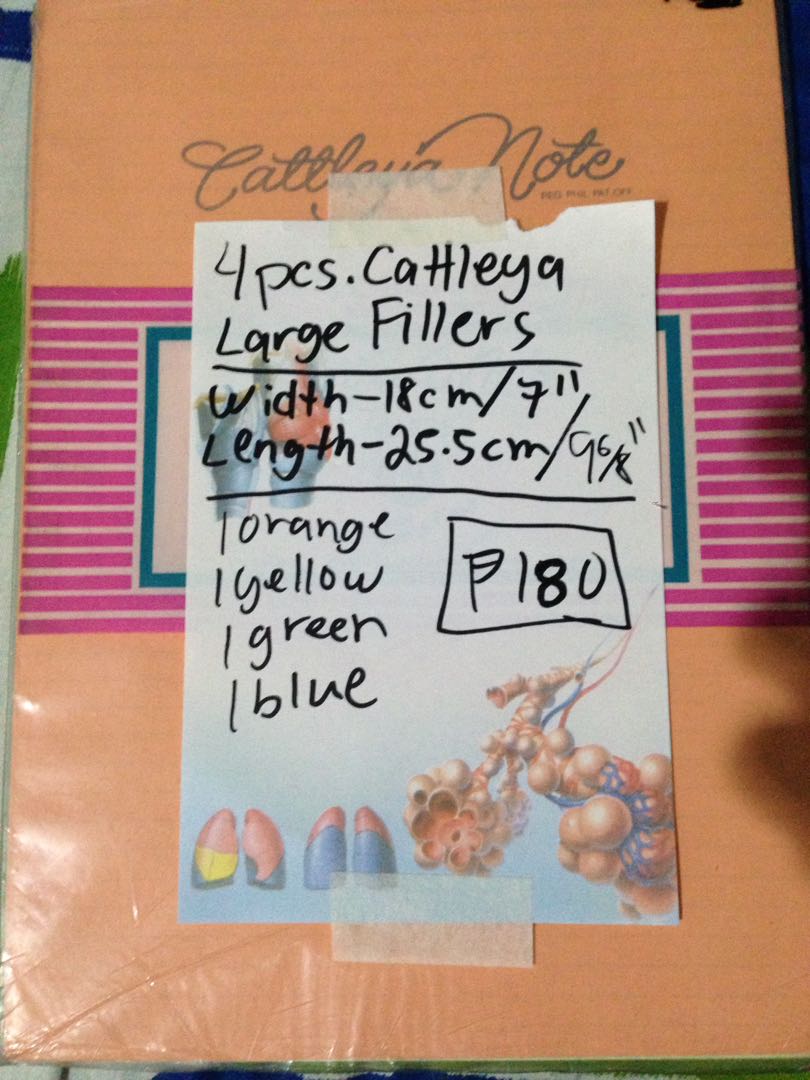 Cattleya Note
REG. PHIL. PAT. OFF.
4 pcs. Cattleya
Large Fillers
Width-18cm/7"
Length-25.5cm/9 6/8"
1 orange
1 yellow
1 green
1 blue
₱180